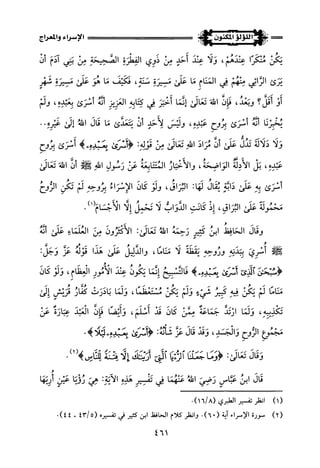 الإسراء والمعراج
اللؤلؤ المكنون
يَكُنْ مُنْكَرًا عِنْدَهُمْ، وَلَا عِنْدَ أَحَدٍ مِنْ ذَوِي الفِطْرَةِ الصَّحِيحَةِ مِنْ بَنِي آدَمَ أَنْ
يَرَى الرَّائِي مِنْهُمْ فِي المَنَامِ مَا عَلَى مَسِيرَةِ سَنَةٍ، فَكَيْفَ مَا هُوَ عَلَى مَسِيرَةِ شَهْرٍ
أَوْ أَقَلَّ؟ وَبَعْدُ، فَإِنَّ اللهَ تَعَالَى إِنَّمَا أَخْبَرَ فِي كِتَابِهِ العَزِيزِ أَنَّهُ أَسْرَى بِعَبْدِهِ، وَلَمْ
يُخْبِرْنَا أَنَّهُ أَسْرَى بِرُوحِ عَبْدِهِ، وَلَيْسَ لِأَحَدٍ أَنْ يَتَعَدَّى مَا قَالَ اللهُ إِلَى غَيْرِهِ..
وَلَا دَلَالَةَ تَدُلُّ عَلَى أَنَّ مُرَادَ اللهِ تَعَالَى مِنْ قَوْلِهِ: ﴿أَسْرَىٰ بِعَبْدِهِ﴾ أَسْرَى بِرُوحِ
عَبْدِهِ، بَلِ الأَدِلَّةُ الوَاضِحَةُ، وَالأَخْبَارُ المُتَتَابِعَةُ عَنْ رَسُولِ اللهِ ﷺ أَنَّ اللهَ تَعَالَى
أَسْرَى بِهِ عَلَى دَابَّةٍ يُقَالُ لَهَا: البُرَاقُ، وَلَوْ كَانَ الإِسْرَاءُ بِرُوحِهِ لَمْ تَكُنِ الرُّوحُ
مَحْمُولَةً عَلَى البُرَاقِ، إِذْ كَانَتِ الدَّوَابُّ لَا تَحْمِلُ إِلَّا الأَجْسَامَ(١).
وَقَالَ الحَافِظُ ابنُ كَثِيرٍ رَحِمَهُ اللهُ تَعَالَى: الأَكْثَرُونَ مِنَ العُلَمَاءِ عَلَى أَنَّهُ
أُسْرِيَ بِبَدَنِهِ ورُوحِهِ يَقَظَةً لَا مَنَامًا، وَالدَّلِيلُ عَلَى هَذَا قَوْلُهُ عَزَّ وَجَلَّ:
﴿سُبْحَٰنَ ٱلَّذِىٓ أَسْرَىٰ بِعَبْدِهِ﴾ فَالتَّسْبِيحُ إِنَّمَا يَكُونُ عِنْدَ الأُمُورِ العِظَامِ، وَلَوْ كَانَ
مَنَامًا لَمْ يَكُنْ فِيهِ كَبِيرُ شَيْءٍ وَلَمْ يَكُنْ مُسْتَعْظَمًا، وَلَمَا بَادَرَتْ كُفَّارُ قُرَيْشٍ إِلَى
تَكْذِيبِهِ، وَلَمَا ارْتَدَّ جَمَاعَةٌ مِمَّنْ كَانَ قَدْ أَسْلَمَ، وَأَيْضًا فَإِنَّ العَبْدَ عِبَارَةٌ عَنْ
مَجْمُوعِ الرُّوحِ وَالجَسَدِ، وَقَدْ قَالَ عَزَّ شَأْنُهُ: ﴿أَسْرَىٰ بِعَبْدِهِ لَيْلًا﴾.
وَقَالَ تَعَالَى: ﴿وَمَا جَعَلْنَا ٱلرُّءْيَا ٱلَّتِىٓ أَرَيْنَٰكَ إِلَّا فِتْنَةً لِّلنَّاسِ﴾(٢).
قَالَ ابنُ عَبَّاسٍ رَضِيَ اللهُ عَنْهُمَا فِي تَفْسِيرِ هَذِهِ الآيَةِ: هِيَ رُؤْيَا عَيْنٍ أُرِيَهَا
(١) انظر تفسير الطبري (١٦/٨).
(٢) سورة الإسراء آية (٦٠). وانظر كلام الحافظ ابن كثير في تفسيره (٤٣/٥ - ٤٤).
٤٦١